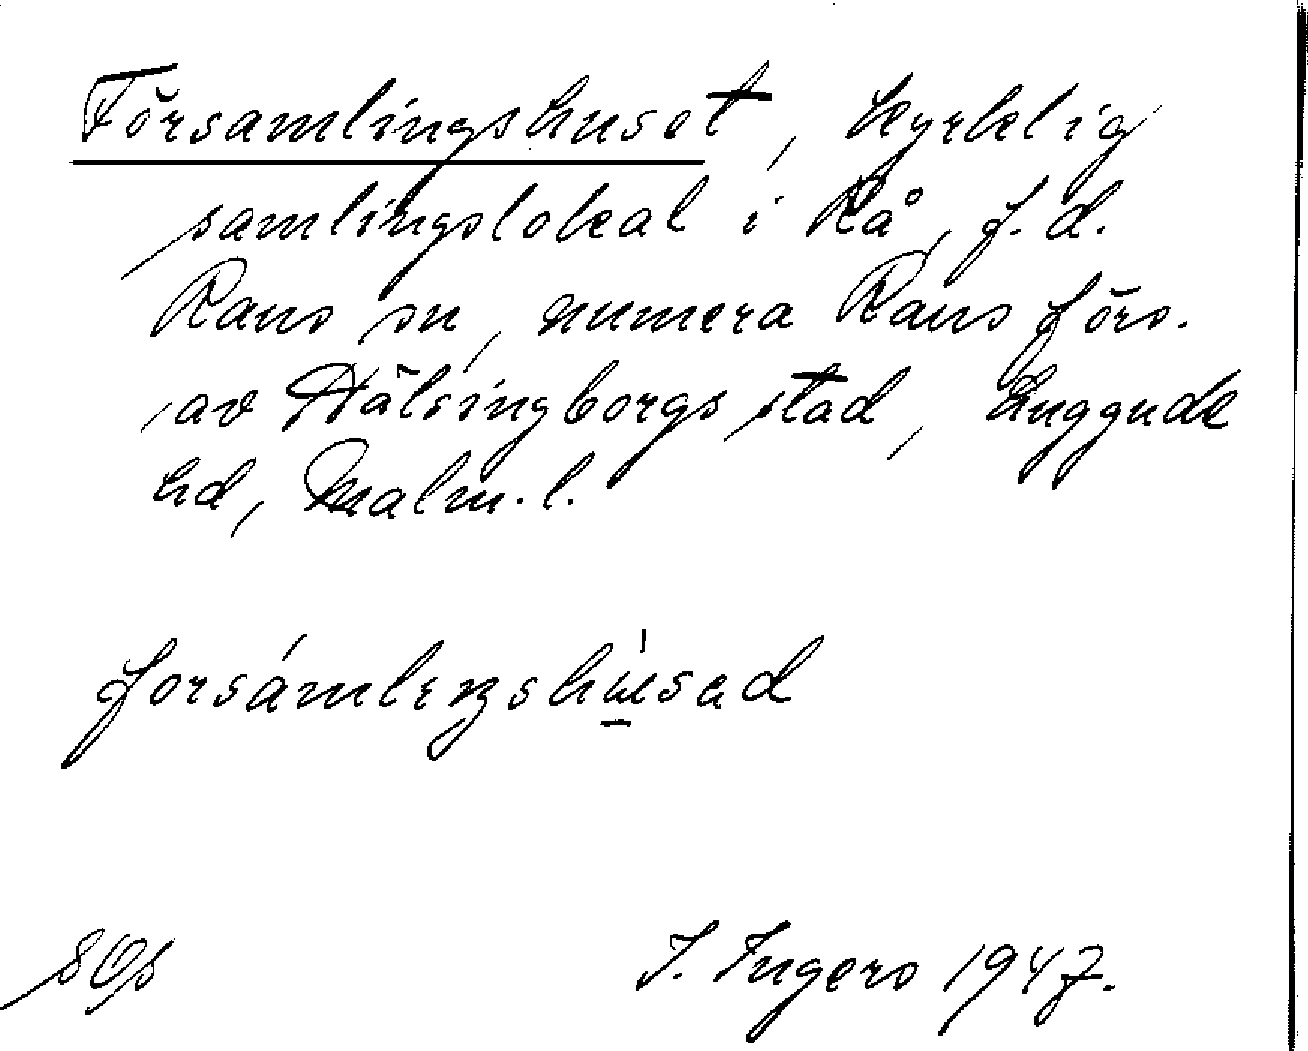 Församlingshuset, kyrklig
samlingslokal i Rå, f.d.
Raus sn, numera Raus förs.
av Hälsingborgs stad, Luggude
hd, Malm. l.
forsámleŋshu̲sad
I. Ingers 1947.